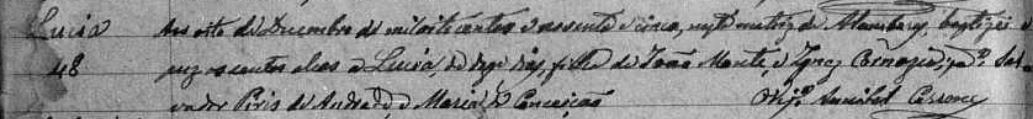 Lucia Aos oito de Dezembro de mil oito centos e noventa e cinco, nesta matriz de Alambary, baptizei e
48 puz os santos oleos a Lucia, de dez dias, filha de João Monte, e Ignez Cornazia; pad. Sal-
vador Pires de Andrade e Maria da Conceição O Vig.º Annibal